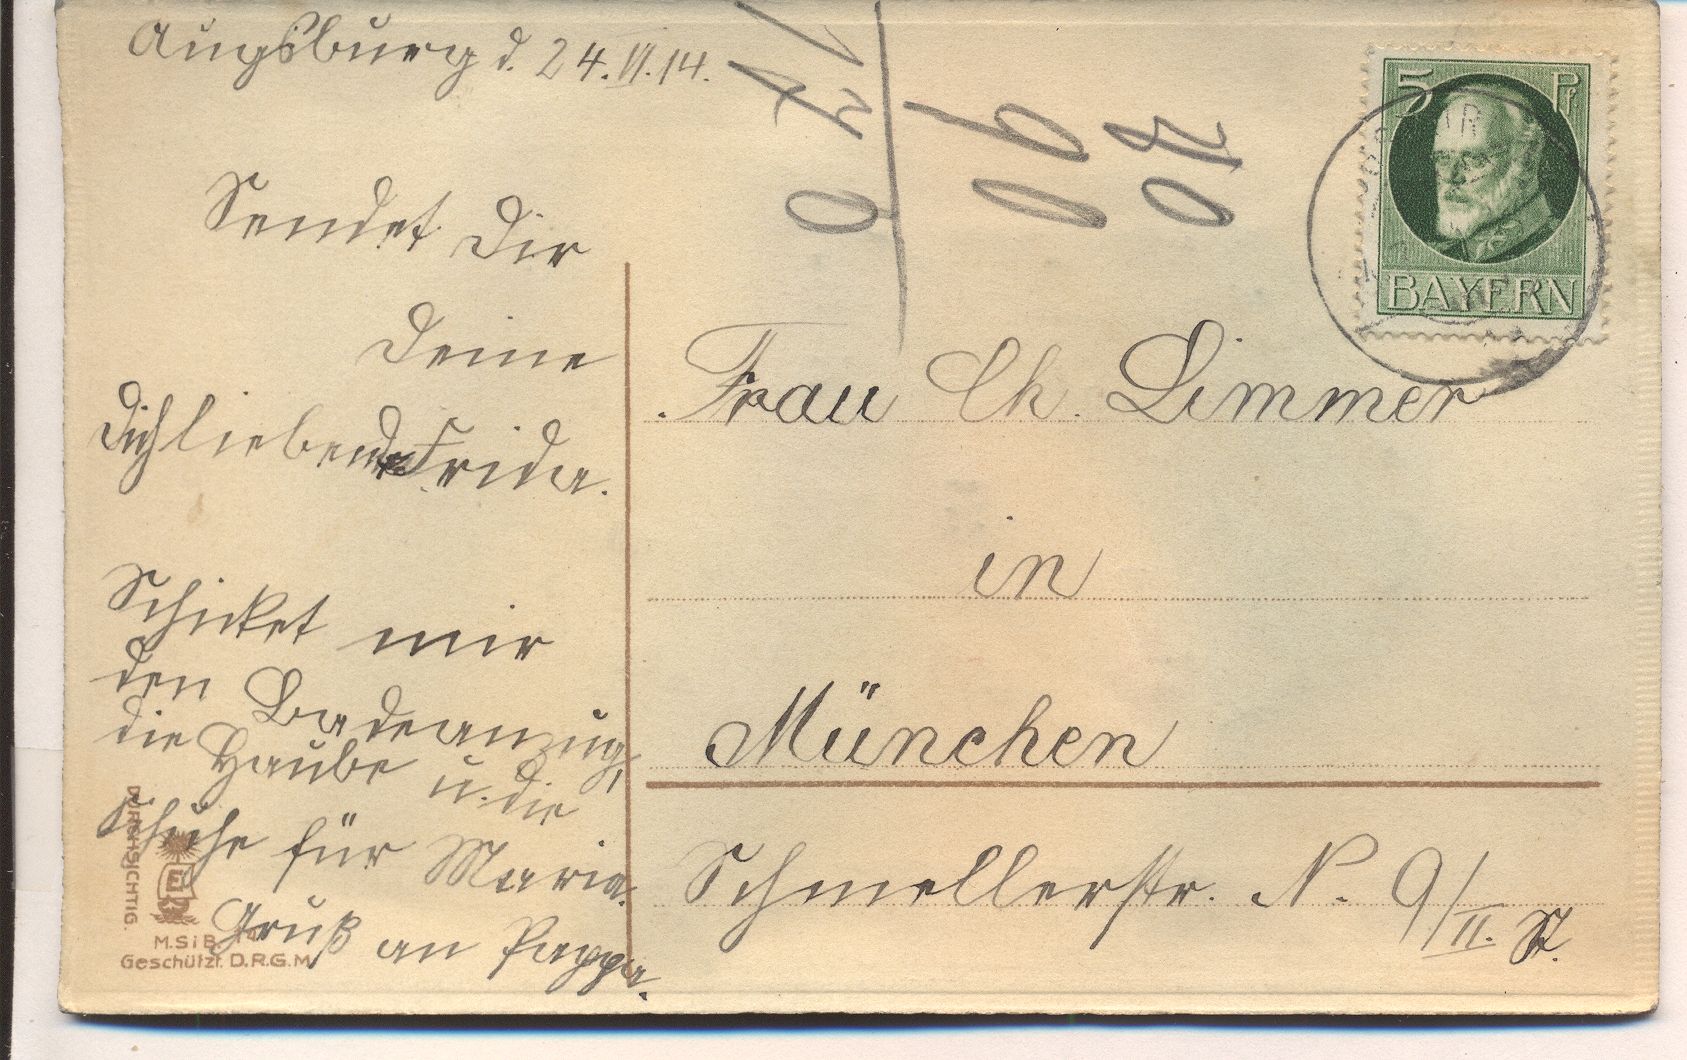 Augsburg d. 24.VI.14.
Sendet Dir
Deine
Dichliebende Frida.
Schicket mir
den Badeanzug,
die Haube u. die
Schuhe für Maria.
Gruß an Pappa.
DURCHSICHTIG.
M.S.i.B.
Geschützt D.R.G.M.
90
5 Pf
BAYERN
Frau Ch. Limmer
in
München
Schmellerstr. N. 9/II. St.